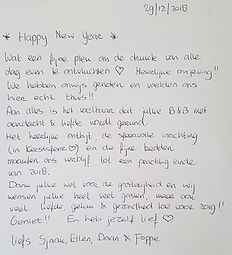 29/12/2018
* Happy New Year *
Wat een fijne plek om de drukte van alle
dag even te ontvluchten ♡ Heerlijke omgeving!!
We hebben onwijs genoten en voelden ons
hier echt thuis!!
Aan alles is het voelbaar dat jullie B&B met
aandacht & liefde wordt gerund.
Het heerlijke ontbijt, de sfeervolle inrichting
(in kerstsfeer ♡) en de fijne bedden
maakten ons verblijf tot een prachtig einde
van 2018.
Dank jullie wel voor de gastvrijheid en wij
wensen jullie heel veel gasten, maar ook
veel liefde, geluk & gezondheid toe voor 2019!!
Geniet!! En heb jezelf lief ♡
liefs Sjaak, Ellen, Daan & Foppe